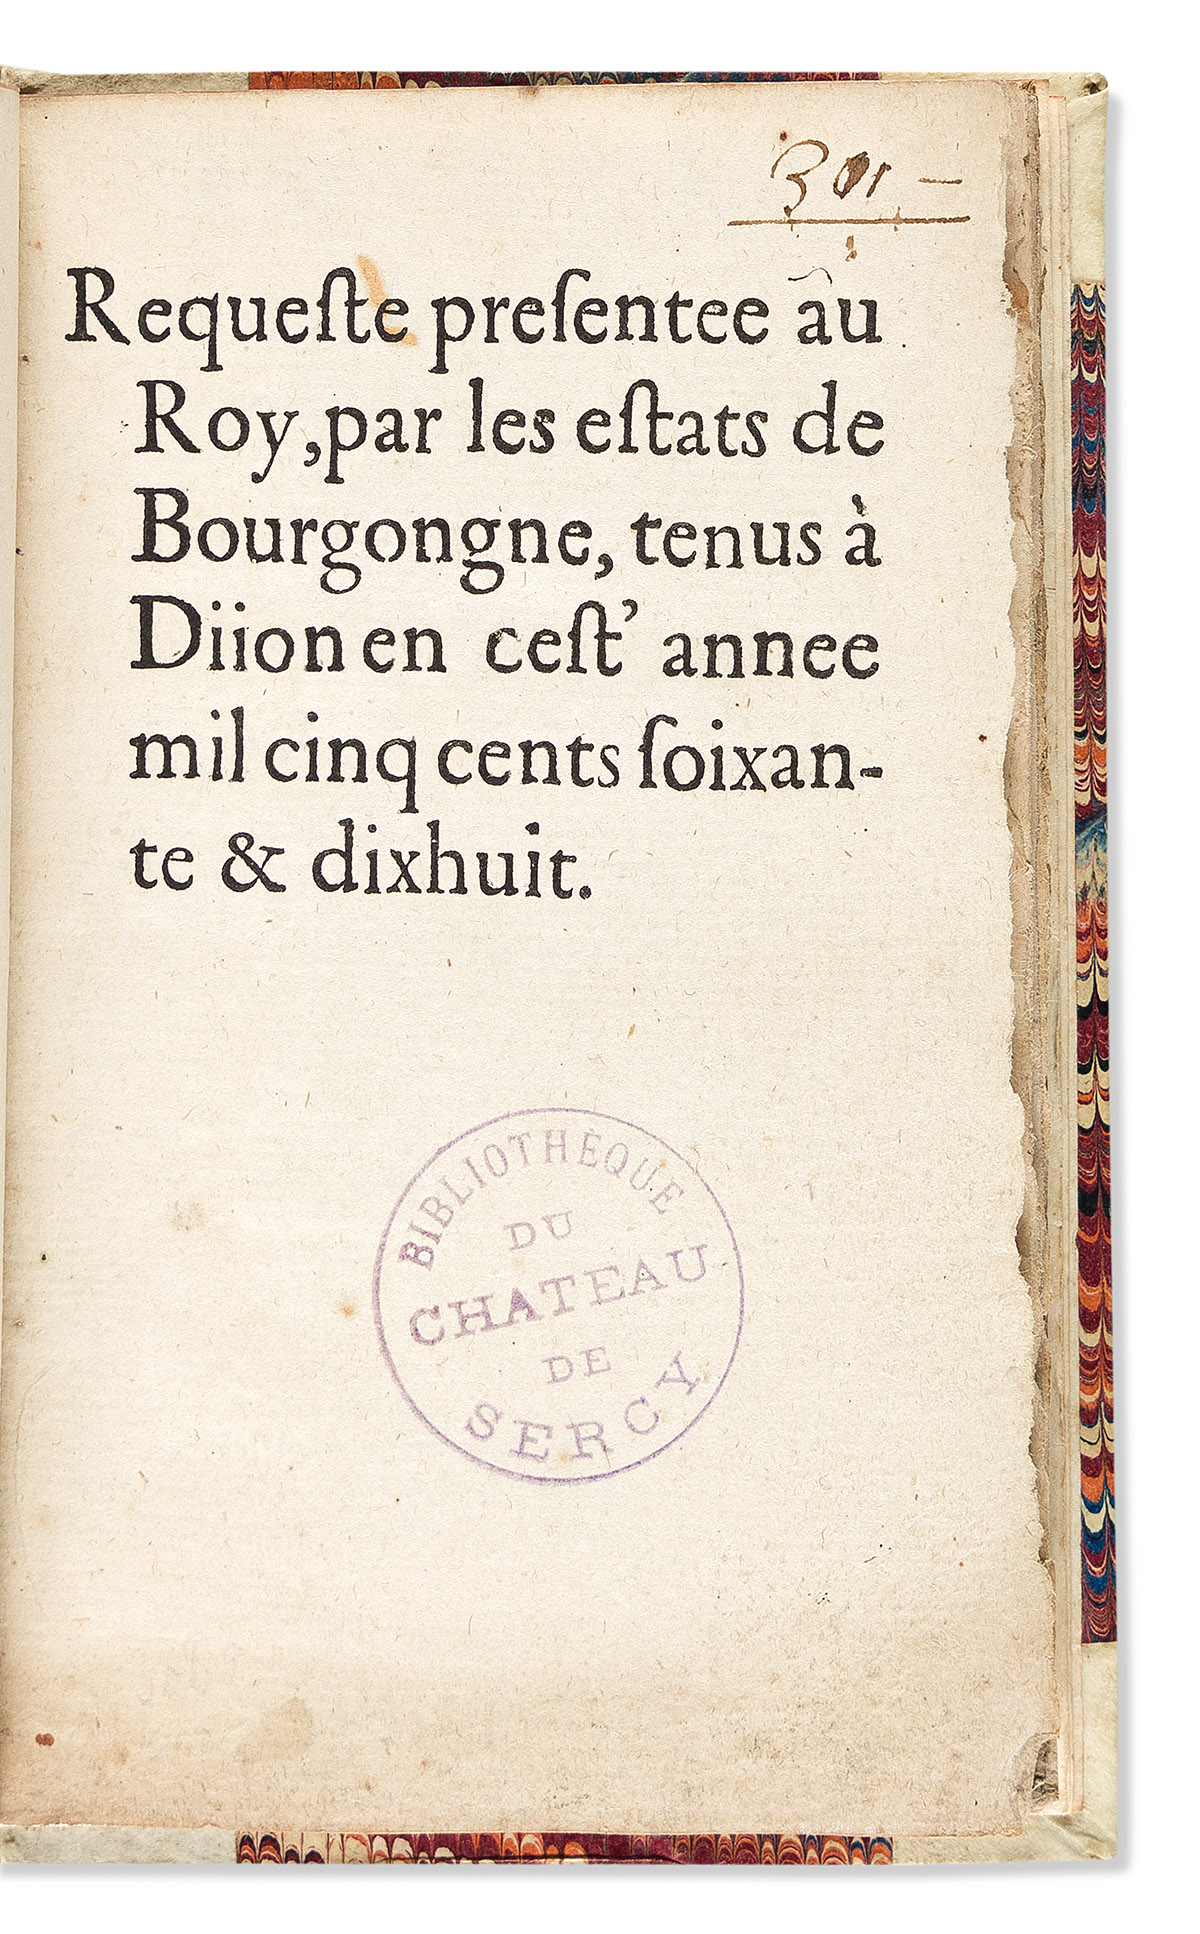 301 —
Requeſte preſentee au
Roy, par les eſtats de
Bourgongne, tenus à
Diion en ceſt' annee
mil cinq cents ſoixan-
te & dixhuit.
BIBLIOTHÈQUE
DU
CHATEAU
DE
SERCY